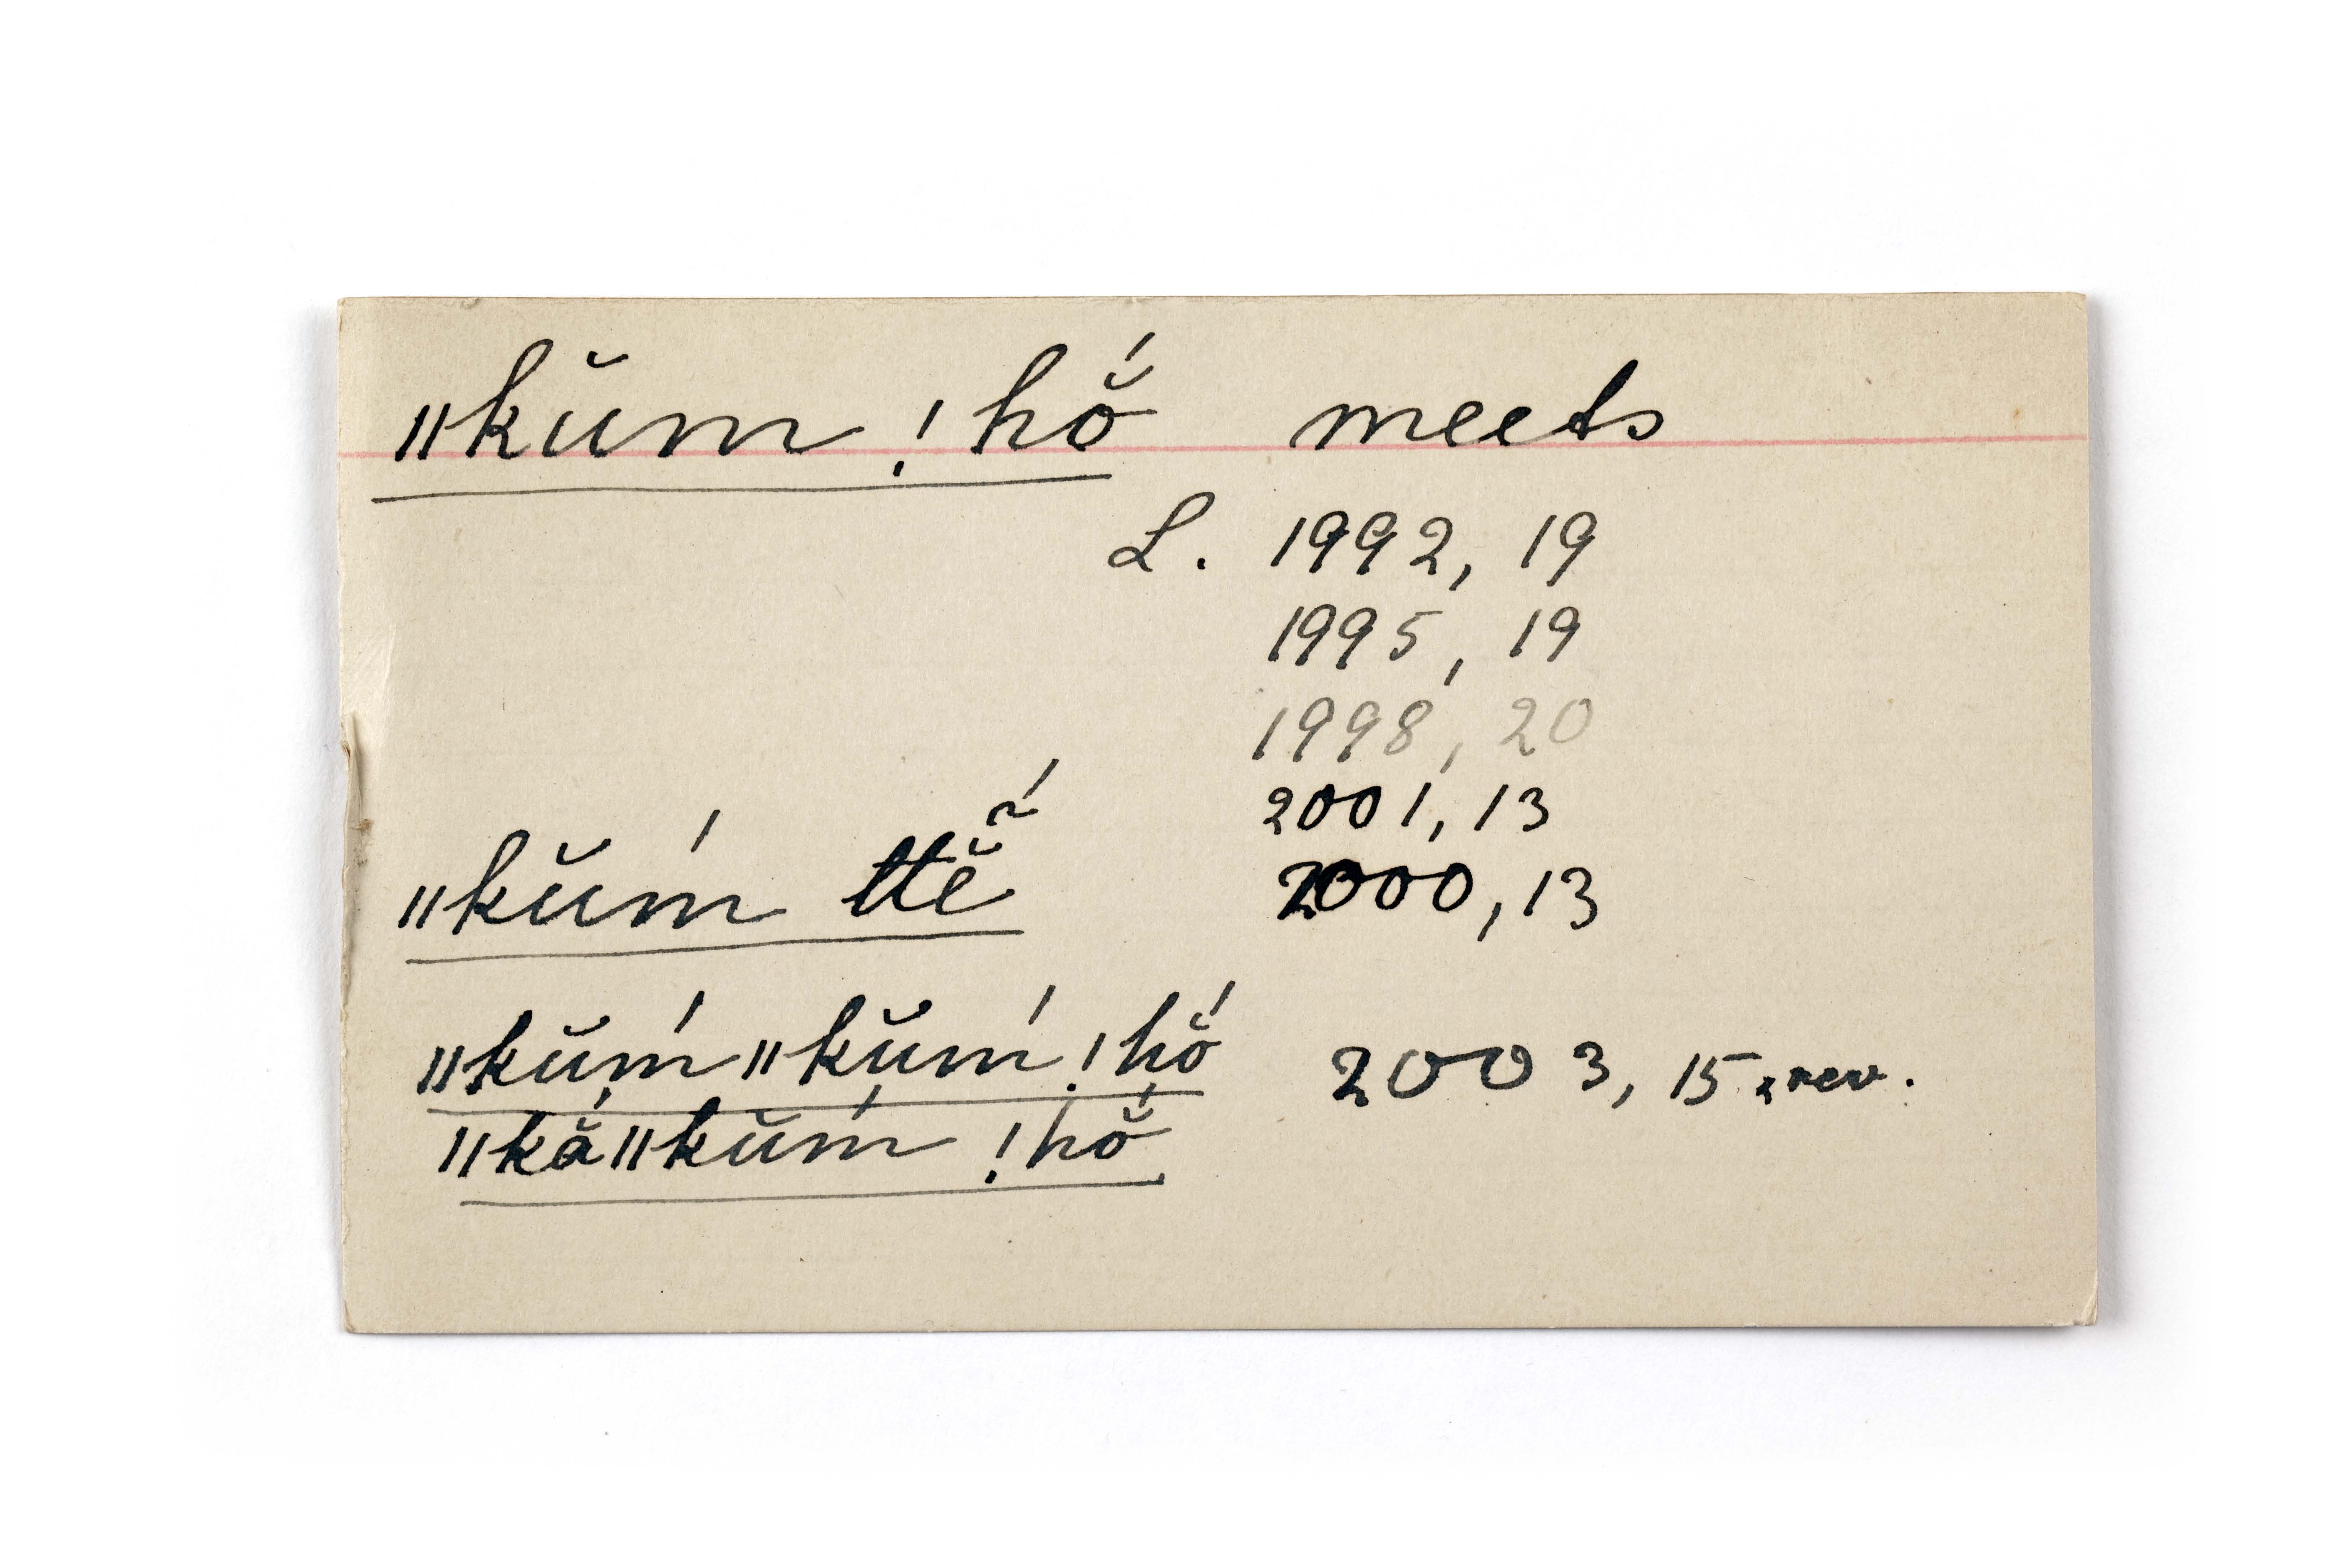 ǁkŭm ǃhŏ́ meets
L. 1992, 19
1995, 19
1998, 20
2001, 13
ǁkŭḿ ttĕ̃́ 2000, 13
ǁkŭḿǁkŭḿ ǃhŏ́ 2003, 15 rev.
ǁkắǁkŭḿ ǃhŏ́